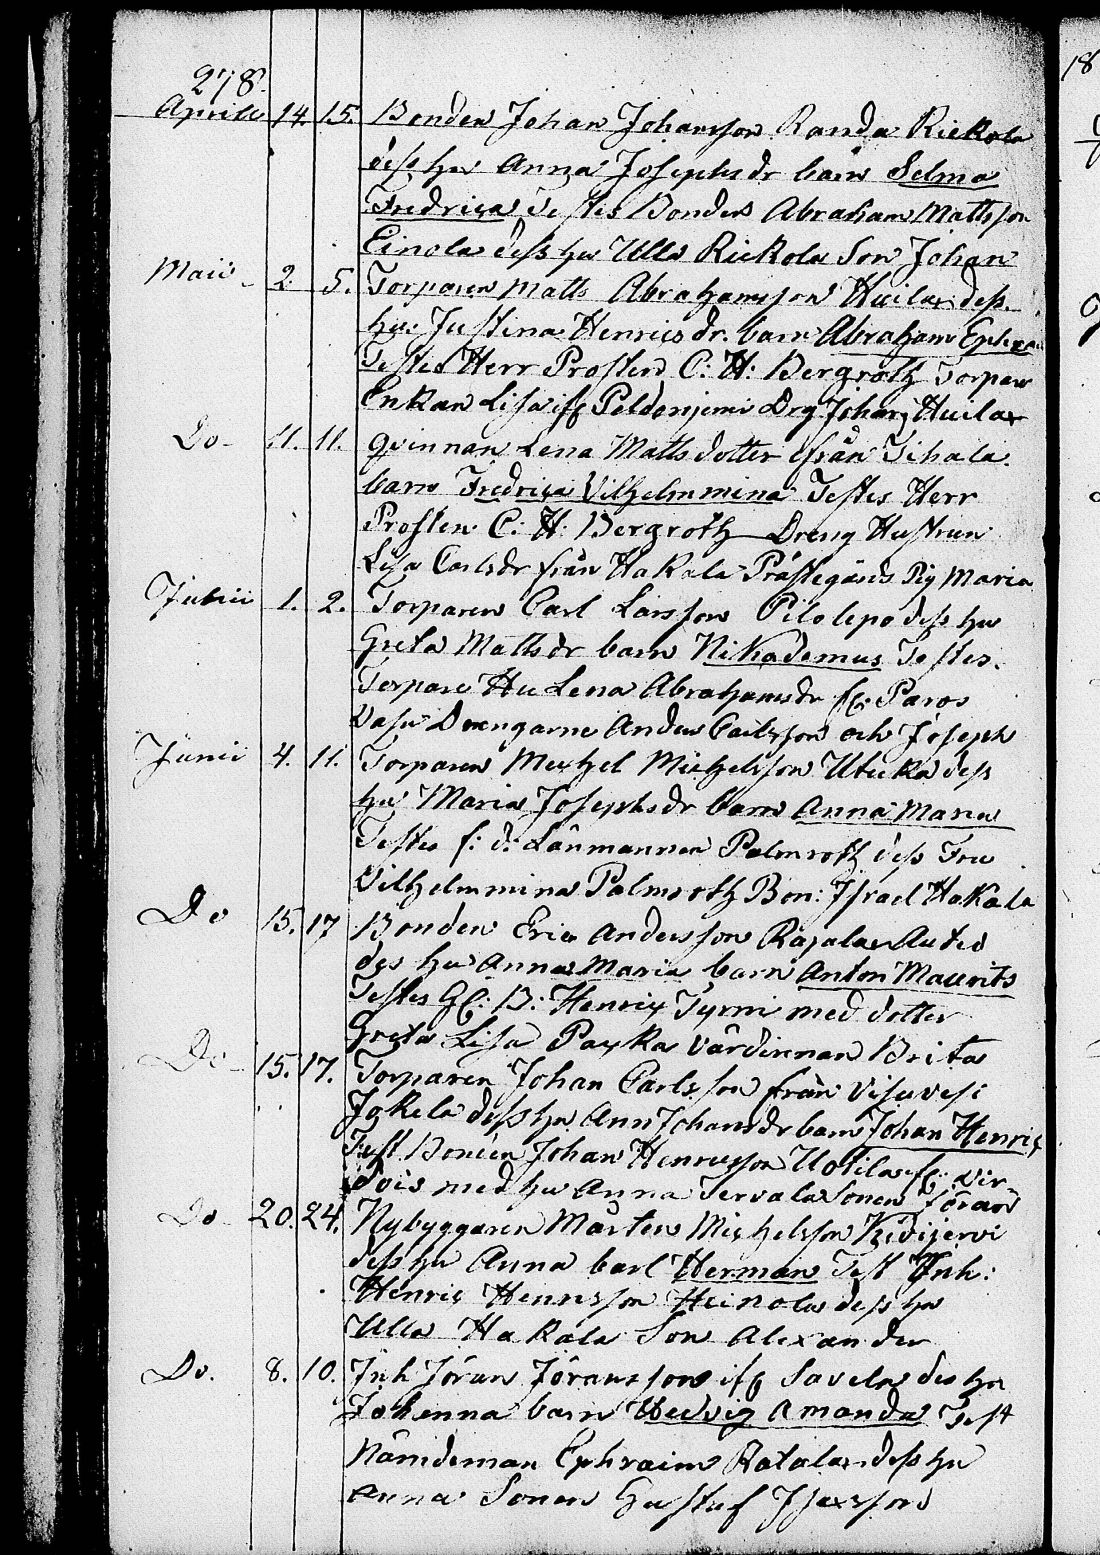 278.
Aprill 14. 15. Bonden Johan Johansson Randa Rickola
dess hu Anna Josephsdr barn Selma
Fredrica Testes Bonden Abraham Mattsson
Einola dess hu Ulla Rickola Son Johan
Maii 2. 5. Torparen Matts Abrahamsson Huila dess
hu: Justina Henricsdr. barn Abraham Ephra
Testes Herr Prosten C: H: Bergroth Torpare
Enkan Lisa ifr Peldonjemi Drg Johan Huila
Do 11. 11. Qvinnan Lena Matts dotter ifrån Tihala.
barn Fredrica Vilhelmmina Testes Herr
Prosten C: H: Bergroth Dreng Hustrun
Lisa Carlsdr från Hakala Prästegårds Pig Maria
Junii 1. 2. Torparen Carl Larsson Pilolepo dess hu
Greta Mattsdr barn Nikademus Testes.
Torpare Hu Lena Abrahamsdr fr: Paros
Vasu Drengarne Anders Carlsson och Joseph
Junii 4. 11. Torparen Michel Michelsson Utucka dess
hu Maria Josephsdr barn Anna Maria
Testes f: d: Länmannen Palmroth dess Fru
Vilhelmmina Palmroth Bon: Israel Hakala
Do 15. 17 Bonden Eric Andersson Rajala Autio
des hu Anna Maria barn Anton Maurits
Testes Gl: B: Henric Tyrni med dotter
Greta Lisa Payka värdinnan Brita
Do 15. 17. Torparen Johan Carlsson från Visuvesi
Jokela dess hu Ann Johansdr barn Johan Henric
Test Bonden Johan Henricsson Uotila fr: Vir-
dois med hu Anna Tervala Sonen Jöran
Do 20. 24. Nybyggaren Mårten Michelsson Kidijervi
dess hu Anna barl Herman Test Inh:
Henric Henricsson Heinola dess hu
Ulla Hakala Son Alexander
Do. 8. 10. Inh Jöran Jöransson ifr Savela des hu
Johanna barn Hedvig Amanda Test
Nämdeman Ephraim Ratala dess hu
Anna Sonen Gustaf Isacsson
18